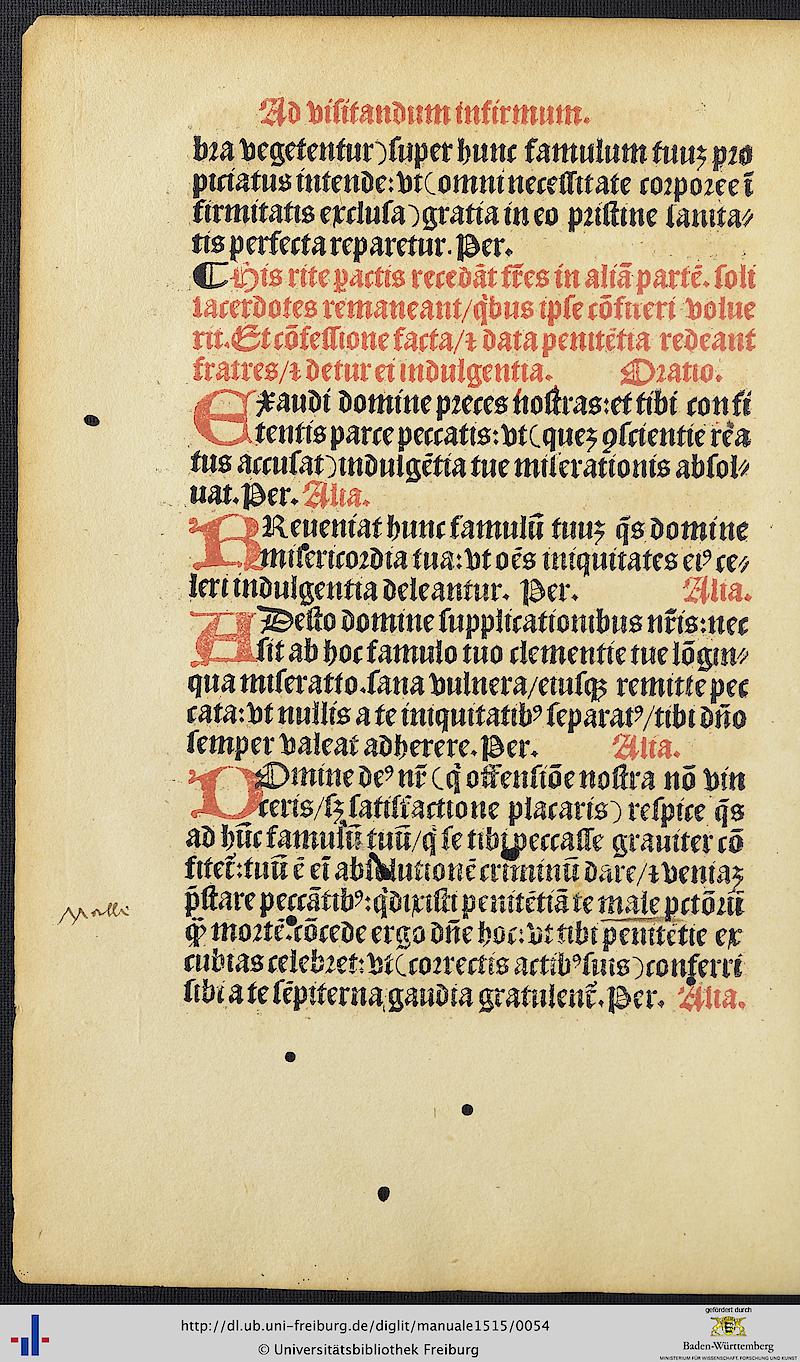 Ad visitandum infirmum.
bra vegetentur) super hunc famulum tuuʒ pro
piciatus intende: vt (omni necessitate corporee ĩ
firmitatis exclusa) gratia in eo pristine sanita⸗
tis perfecta reparetur. Per.
¶ His rite ꝑactis recedãt fr̃es in aliã partẽ. soli
sacerdotes remaneant / q̃bus ipse cõfiteri volue
rit. Et cõfessione facta / ⁊ data penitẽtia redeant
fratres / ⁊ detur ei indulgentia. Oratio.
Exaudi domine preces nostras: et tibi confi
tentis parce peccatis: vt (queʒ ꝯscientie rẽa
tus accusat) indulgẽtia tue miserationis absol⸗
uat. Per. Alia.
PReueniat hunc famulũ tuuʒ q̃s domine
misericordia tua: vt oẽs iniquitates eiꝰ ce⸗
leri indulgentia deleantur. Per. Alia.
ADesto domine supplicationibus nr̃is: nec
sit ab hoc famulo tuo clementie tue lõgin⸗
qua miseratio. sana vulnera / eiusqʒ remitte pec
cata: vt nullis a te iniquitatibꝰ separatꝰ / tibi dño
semper valeat adherere. Per. Alia.
DOmine deꝰ nr̃ (q̇ offensiõe nostra nõ vin
ceris / sʒ satisfactione placaris) respice q̃s
ad hũc famulũ tuũ / q̇ se tibi peccasse grauiter cõ
fitet̃: tuũ ẽ eĩ absolutionẽ criminũ dare / ⁊ veniaʒ
p̃stare peccãtibꝰ: q̇ dixisti penitẽtiã te male pctõrũ
ꝙ̃ mortẽ. cõcede ergo dñe hoc: vt tibi penitẽtie ex
cubias celebret: vt (correctis actibꝰ suis) conferri
sibi a te sẽpiterna gaudia gratulent̃. Per. Alia.
Malle
http://dl.ub.uni-freiburg.de/diglit/manuale1515/0054
© Universitätsbibliothek Freiburg
gefördert durch
Baden-Württemberg
MINISTERIUM FÜR WISSENSCHAFT, FORSCHUNG UND KUNST